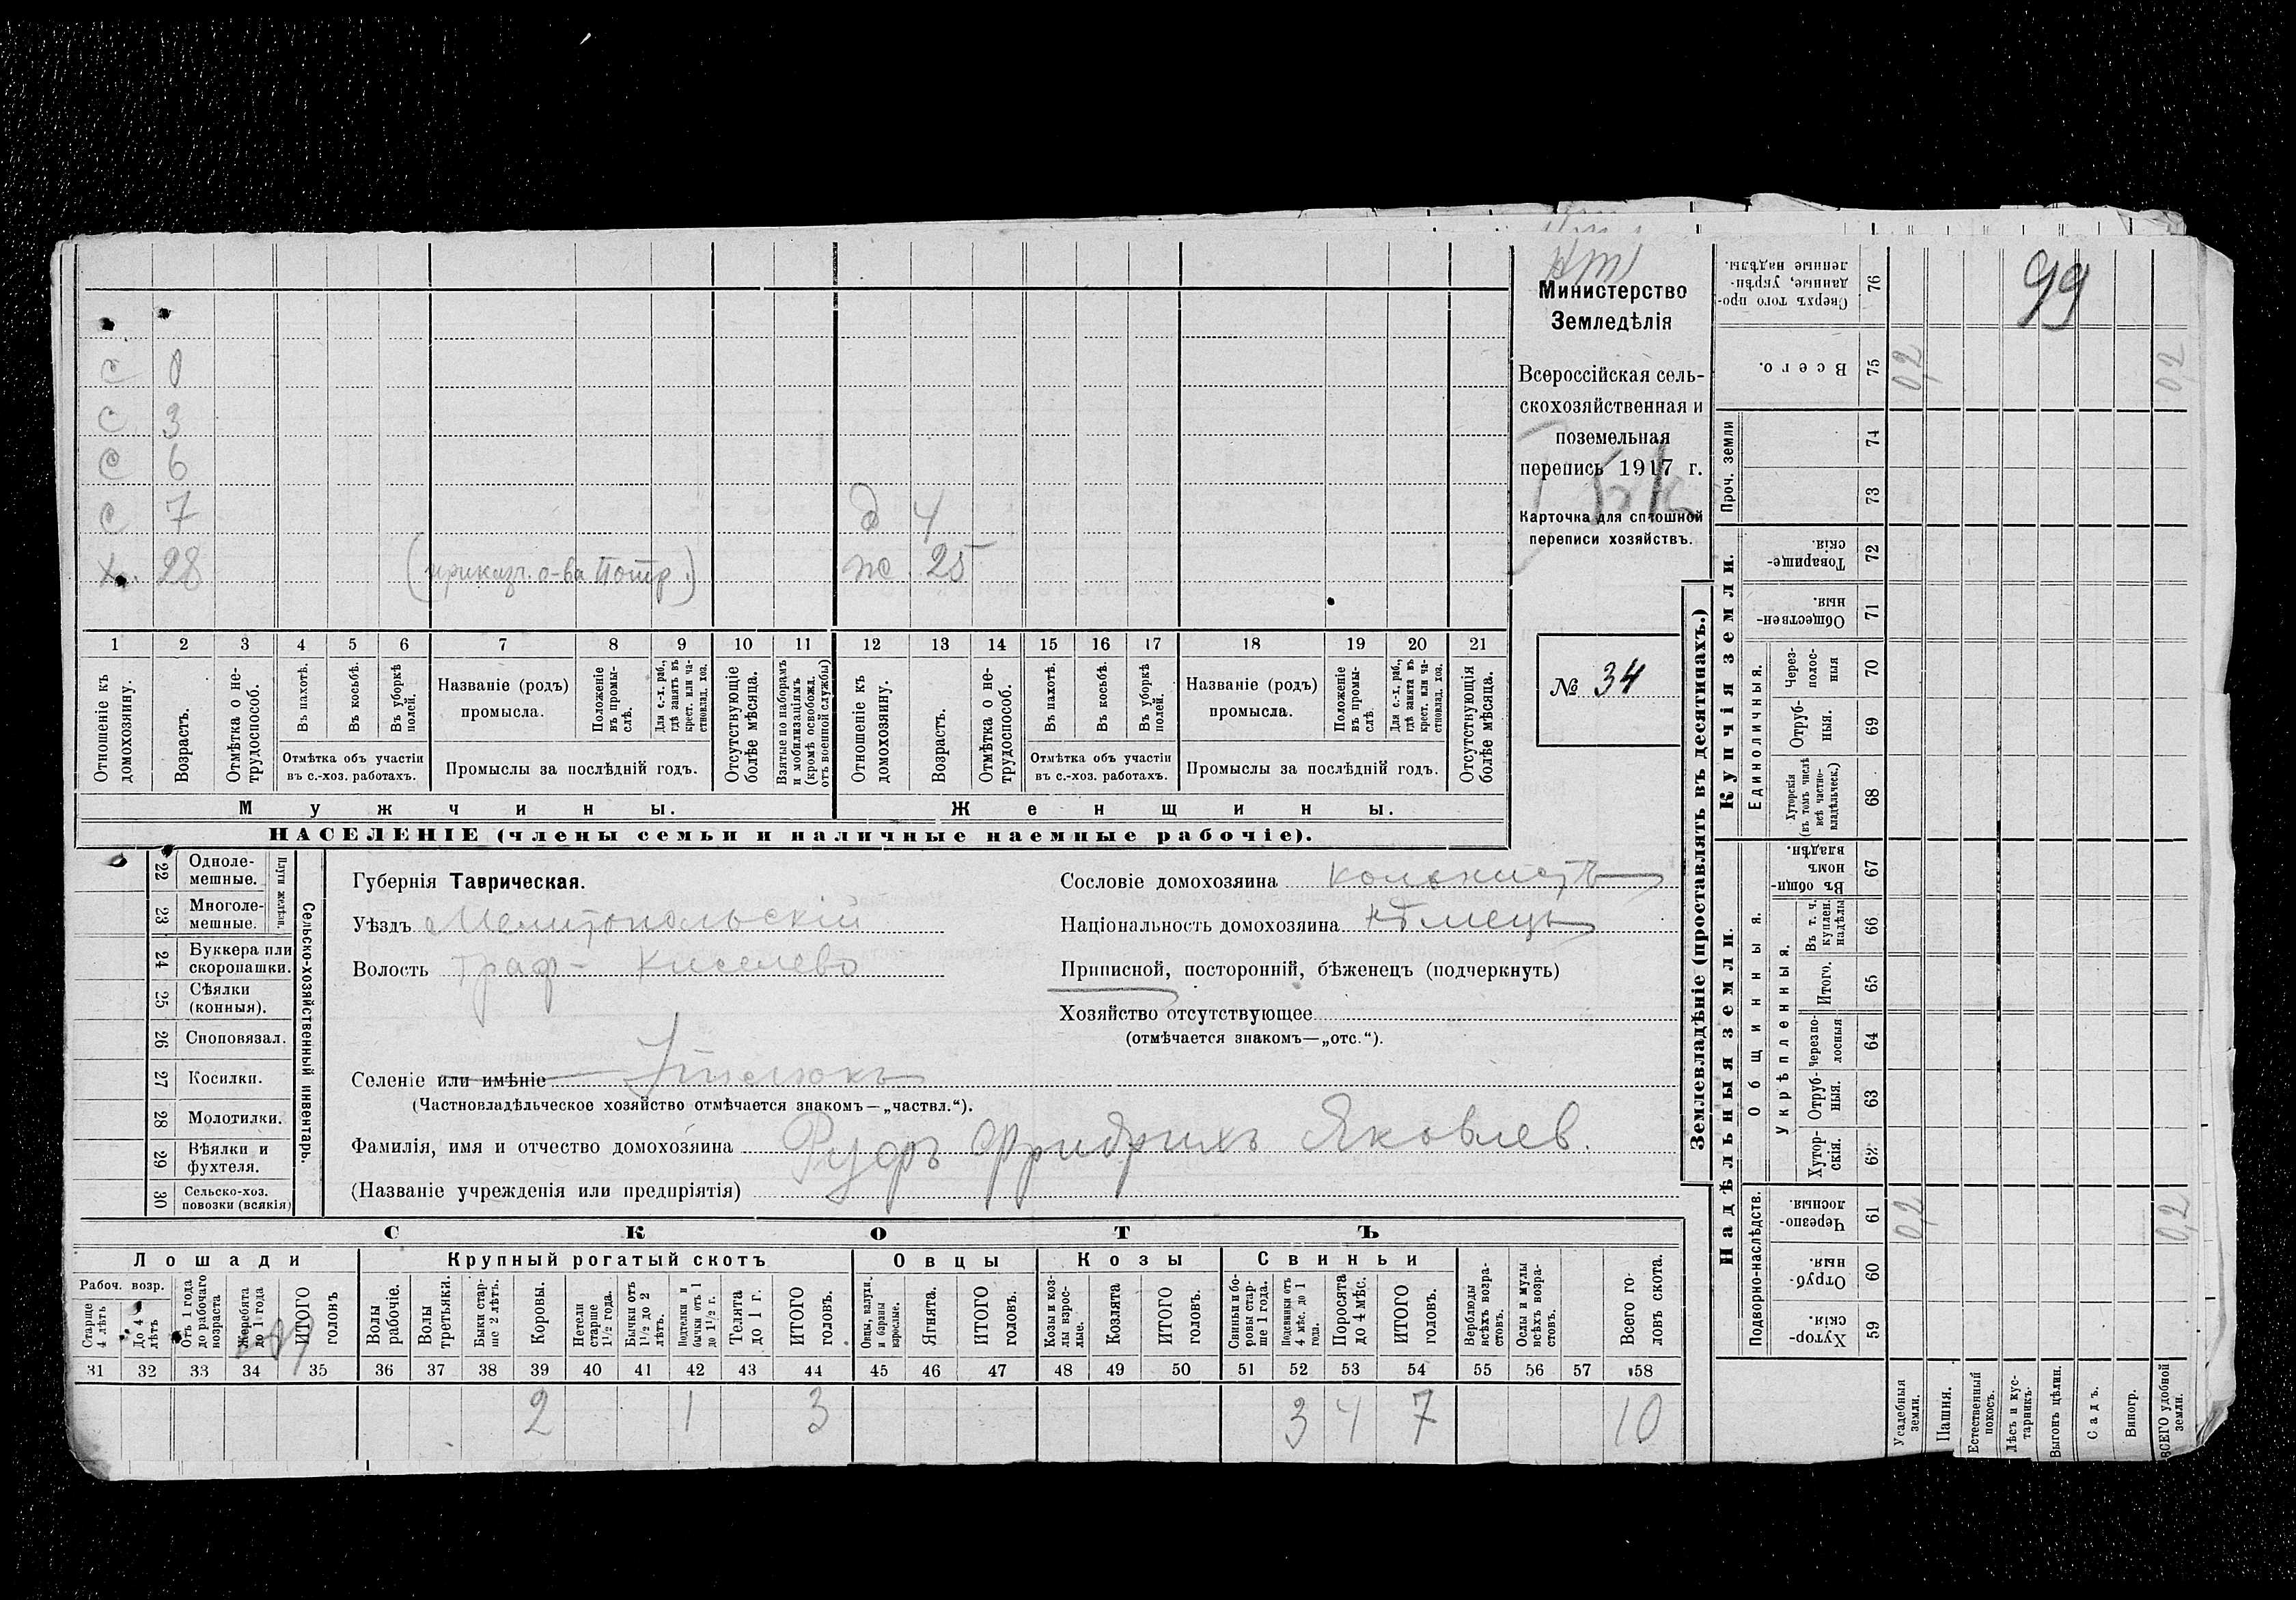 99
Министерство
Земледѣлія
Всероссійская сель-
скохозяйственная и
поземельная
перепись 1917 г.
Карточка для сплошной
переписи хозяйствъ.
№ 34
с 0
с 3
с 6
с 7 д 4
х. 28 (приказч. о-ва Потр.) ж. 25
1 2 3 4 5 6 7 8 9 10 11 12 13 14 15 16 17 18 19 20 21
Отношеніе къ домохозяину.
Возрастъ.
Отмѣтка о не-трудоспособ.
Въ пахотѣ.
Въ косьбѣ.
Въ уборкѣ полей.
Отмѣтка объ участіи въ с.-хоз. работахъ.
Названіе (родъ) промысла.
Положеніе въ промы-слѣ.
Для с.-х. раб., гдѣ занятъ въ крест. или ча-стновлад. хоз.
Промыслы за послѣдній годъ.
Отсутствующіе болѣе мѣсяца.
Взятые по наборамъ и мобилизаціямъ (кромѣ освобожд. отъ военной службы)
Отношеніе къ домохозяину.
Возрастъ.
Отмѣтка о не-трудоспособ.
Въ пахотѣ.
Въ косьбѣ.
Въ уборкѣ полей.
Отмѣтка объ участіи въ с.-хоз. работахъ.
Названіе (родъ) промысла.
Положеніе въ промы-слѣ.
Для с.-х. раб., гдѣ занята въ крест. или ча-стновлад. хоз.
Промыслы за послѣдній годъ.
Отсутствующія болѣе мѣсяца.
Мужчины. Женщины.
НАСЕЛЕНІЕ (члены семьи и наличные наемные рабочіе).
22 Одноле-мешные.
23 Многоле-мешные.
Плуги желѣзн.
24 Буккера или скоропашки.
25 Сѣялки (конныя).
26 Сноповязал.
27 Косилки.
28 Молотилки.
29 Вѣялки и фухтеля.
30 Сельско-хоз. повозки (всякія)
Сельско-хозяйственный инвентарь.
Губернія Таврическая.
Уѣздъ Мелитопольскій
Волость Граф-Киселево
Селеніе или имѣніе
(Частновладѣльческое хозяйство отмѣчается знакомъ—„частвл.“).
Фамилія, имя и отчество домохозяина Руфъ Фридрихъ Яковлев.
(Названіе учрежденія или предпріятія)
Сословіе домохозяина колонистъ
Національность домохозяина нѣмецъ
Приписной, посторонній, бѣженецъ (подчеркнуть)
Хозяйство отсутствующее
(отмѣчается знакомъ—„отс.“).
СКОТЪ
Лошади Крупный рогатый скотъ Овцы Козы Свиньи
Рабоч. возр.
Старше 4 лѣтъ
До 4 лѣтъ
Отъ 1 года до рабочаго возраста
Жеребята до 1 года
ИТОГО головъ
Волы рабочіе.
Волы третьяки.
Быки стар-ше 2 лѣтъ.
Коровы.
Нетели старше 1½ года.
Бычки отъ 1½ до 2 лѣтъ.
Подтелки и бычки отъ 1 до 1½ г.
Телята до 1 г.
ИТОГО головъ.
Овцы, валухи и бараны взрослые.
Ягнята.
ИТОГО головъ.
Козы и коз-лы взрос-лые.
Козлята
ИТОГО головъ.
Свиньи и бо-ровы стар-ше 1 года.
Подсвинки отъ 4 мѣс. до 1 года.
Поросята до 4 мѣс.
ИТОГО головъ.
Верблюды всѣхъ возра-стовъ.
Ослы и мулы всѣхъ возра-стовъ.
Всего го-ловъ скота.
31 32 33 34 35 36 37 38 39 40 41 42 43 44 45 46 47 48 49 50 51 52 53 54 55 56 57 58
2 1 3 3 4 7 10
Землевладѣніе (проставлять въ десятинахъ.)
Надѣльныя земли. Купчія земли.
Подворно-наслѣдств.
Общинныя.
Укрѣпленныя.
Единоличныя.
Проч. земли
Хутор-скія. 59
Отруб-ныя. 60
Черезпо-лосныя. 61 0,2 0,2
Хутор-скія. 62
Отруб-ныя. 63
Черезпо-лосныя 64
Итого. 65
Въ т. ч. куплен. надѣлы 66
Въ общин-номъ владѣн. 67
Хуторскія (въ томъ числѣ всѣ частно-владѣльческ.) 68
Отруб-ныя. 69
Через-полос-ныя 70
Обществен-ныя. 71
Товарище-скія. 72
73
74
Всего. 75 0,2 0,2
Сверхъ того про-данные, укрѣп-ленные надѣлы. 76
Усадебныя земли.
Пашня.
Естественный покосъ.
Лѣсъ и кус-тарникъ.
Выгонъ цѣлин.
Садъ.
Виногр.
ВСЕГО удобной земли.